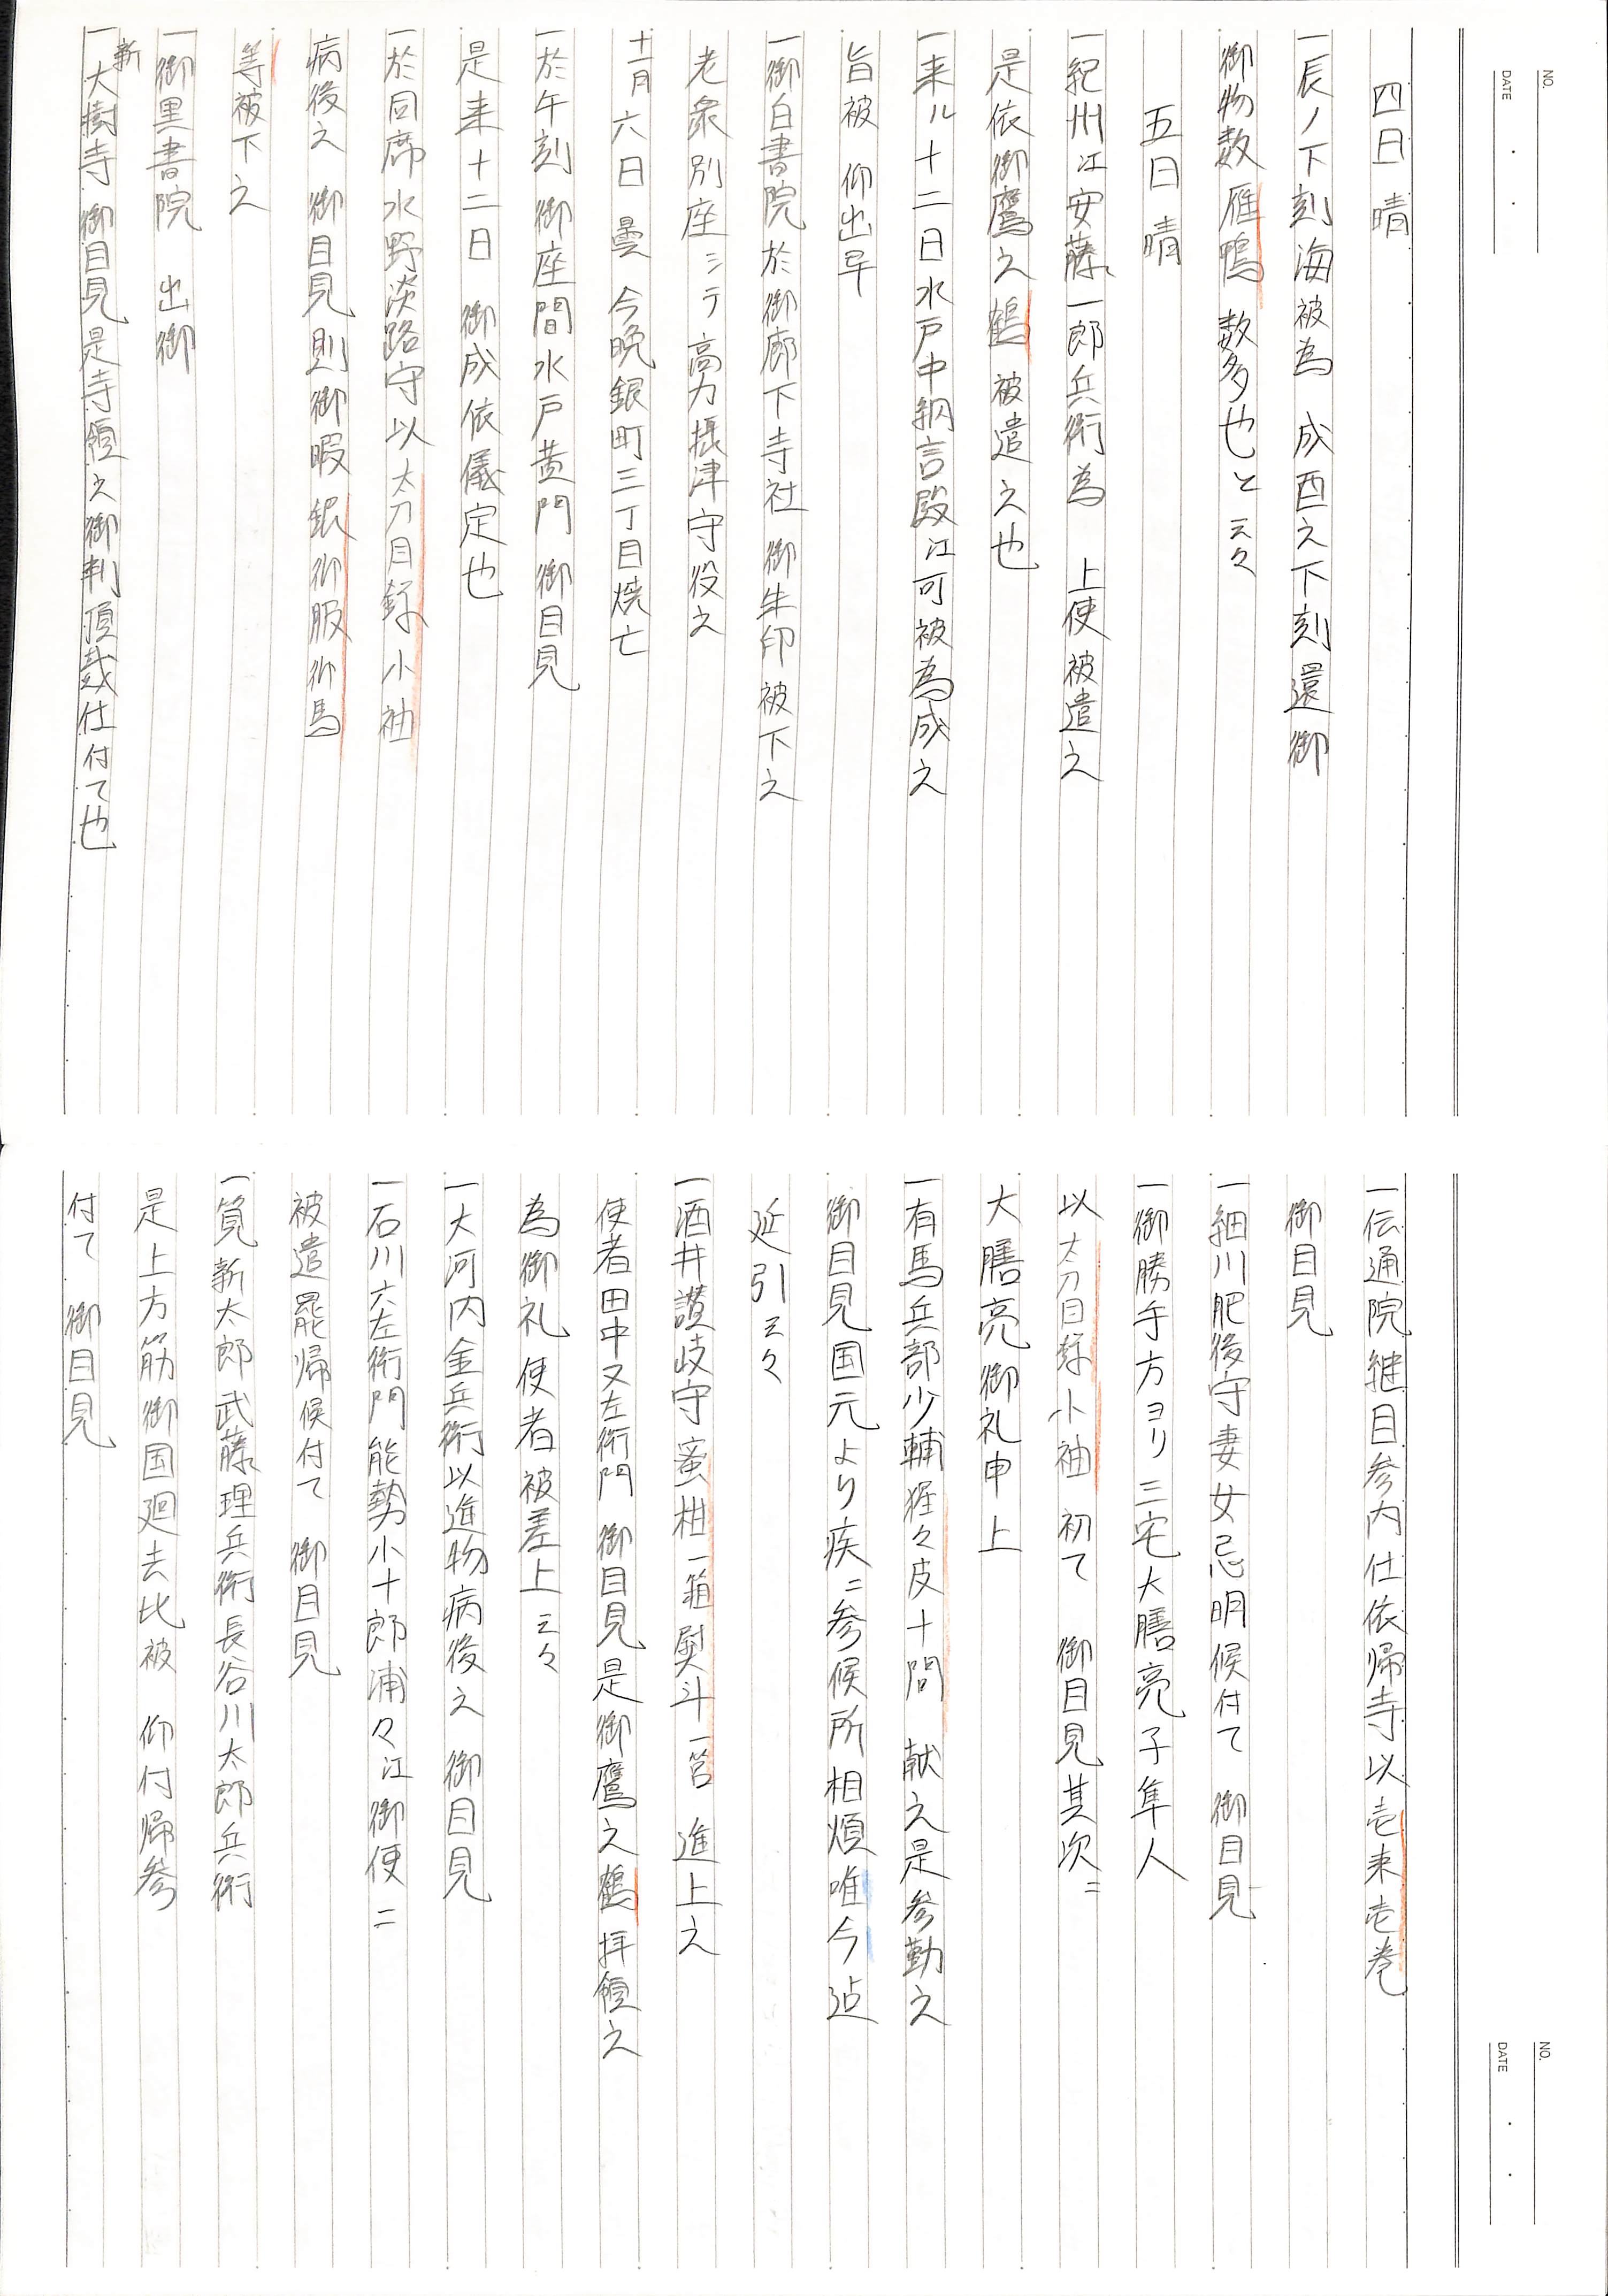 NO.
DATE
四日 晴
一辰ノ下刻海被為 成酉之下刻還御
御物数雁鴨 数多也と云々
五日 晴
一紀州江安藤一郎兵衛為 上使被遣之
是依御鷹之鶴 被遣之也
一来ル十二日水戸中納言殿江可被為成之
旨被 仰出畢
一御白書院於御廊下寺社 御朱印被下之
老衆別座シテ高力摂津守役之
十一月六日 曇 今晩銀町三丁目焼亡
一於午刻 御座間水戸黄門 御目見
是来十二日 御成依儀定也
一於同席水野淡路守以太刀目録小袖
病後之 御目見則御暇 銀御服御馬
等被下之
一御黒書院 出御
新
一大樹寺 御目見是寺領之御判頂戴仕付て也
NO.
DATE
一伝通院継目参内仕依帰寺以壱束壱巻
御目見
一細川肥後守妻女忌明候付て 御目見
一御勝手方ヨリ三宅大膳亮子隼人
以太刀目録小袖 初て 御目見其次ニ
大膳亮御礼申上
一有馬兵部少輔猩々皮十間 献之是参勤之
御目見国元より疾ニ参候所相煩唯今迠
延引云々
一酒井讃岐守蜜柑一箱熨斗一筥 進上之
使者田中又左衛門 御目見是御鷹之鶴 拝領之
為御礼使者被差上云々
一大河内金兵衛以進物病後之 御目見
一石川六左衛門能勢小十郎浦々江御使ニ
被遣罷帰候付て 御目見
一筧新太郎武藤理兵衛長谷川太郎兵衛
是上方筋御国廻去比被 仰付帰参
付て 御目見